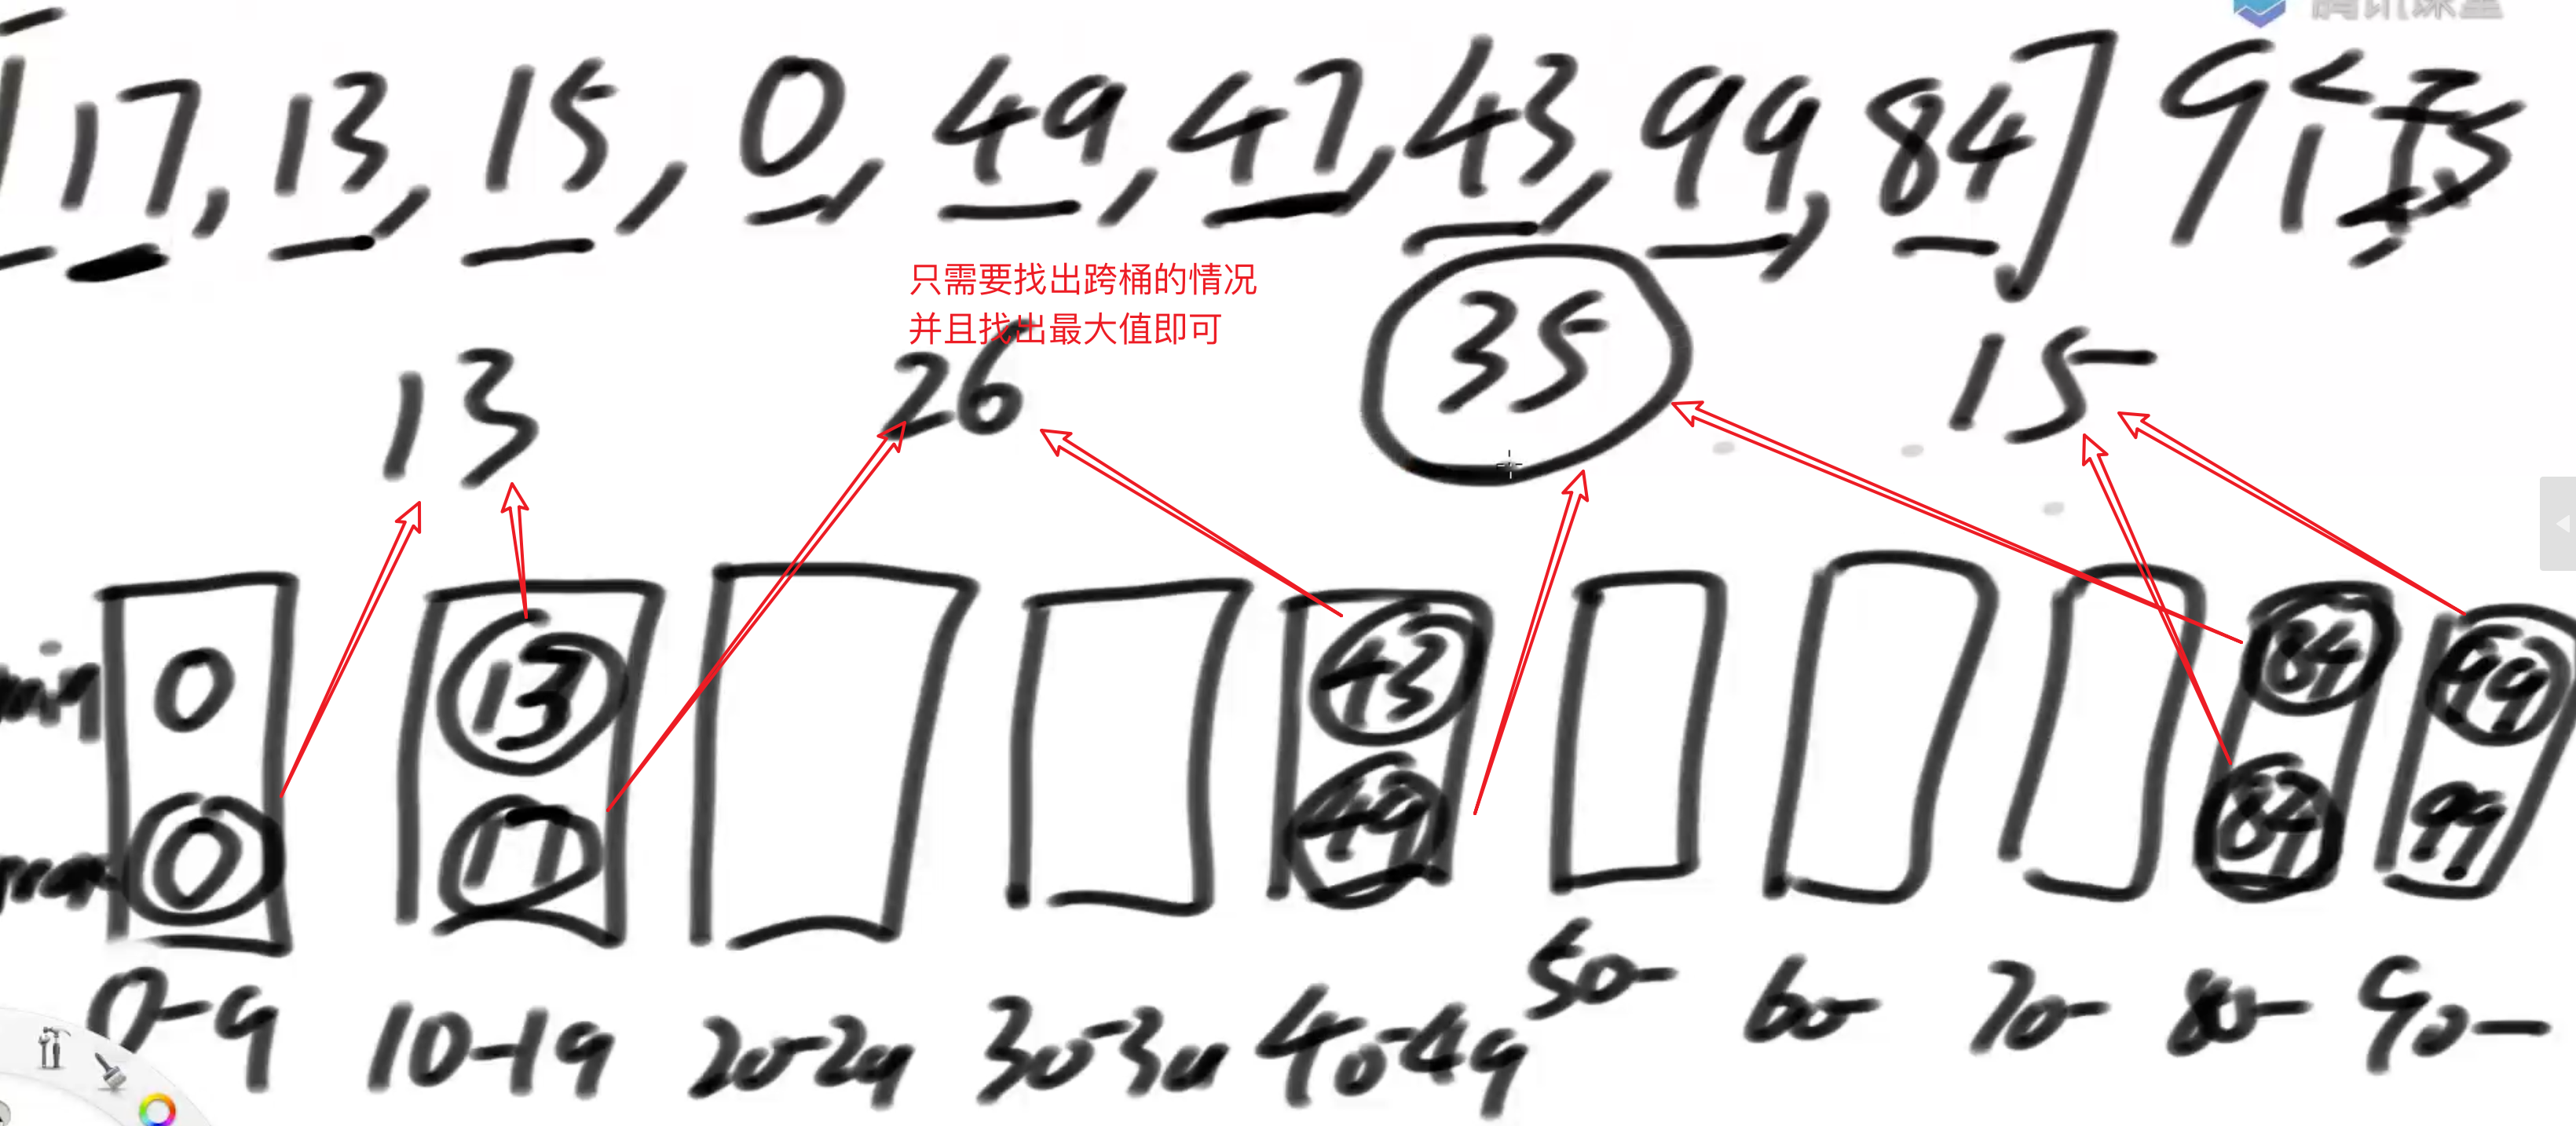 腾讯课堂
[17, 13, 15, 0, 49, 47, 43, 99, 84] 9个
只需要找出跨桶的情况
并且找出最大值即可
13 26 35 15
min 0 13 43 84 99
max 0 17 49 84 99
0-9 10-19 20-29 30-39 40-49 50- 60- 70- 80- 90-